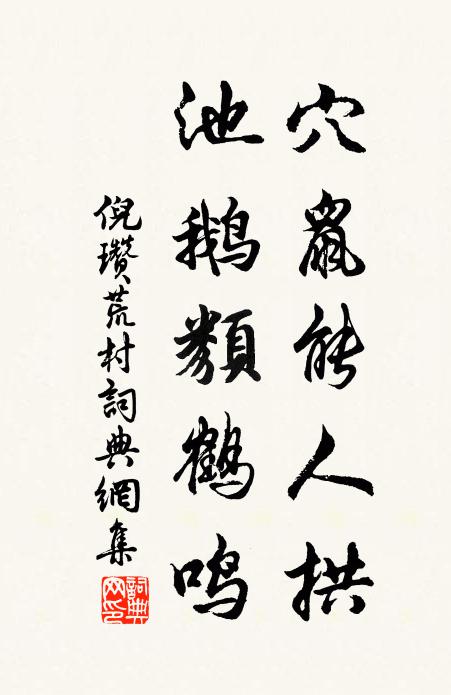 穴鼠能人拱
池鹅類鶴鳴
倪瓚荒村詞典網集
詞典网印